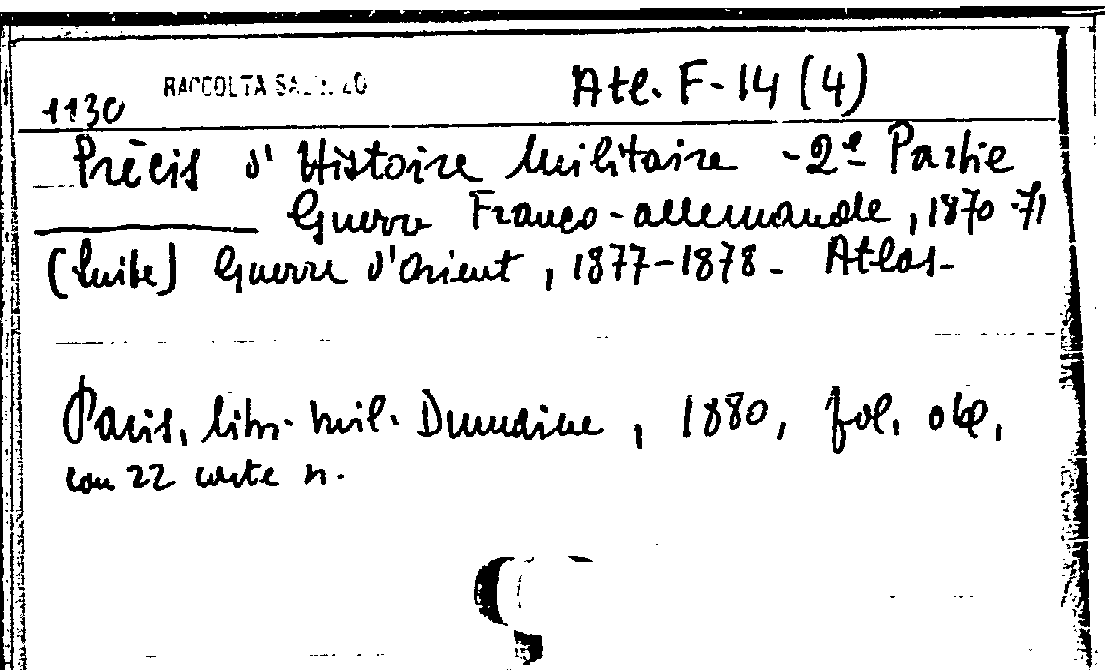 RACCOLTA Atl. F-14 (4)
1130
Précis d'Histoire Militaire - 2e Partie
Guerre Franco-allemande, 1870-71
(Suite) Guerre d'Orient, 1877-1878 - Atlas -
Paris, libr. mil. Dumaine, 1880, fol. obl.,
con 22 carte n.